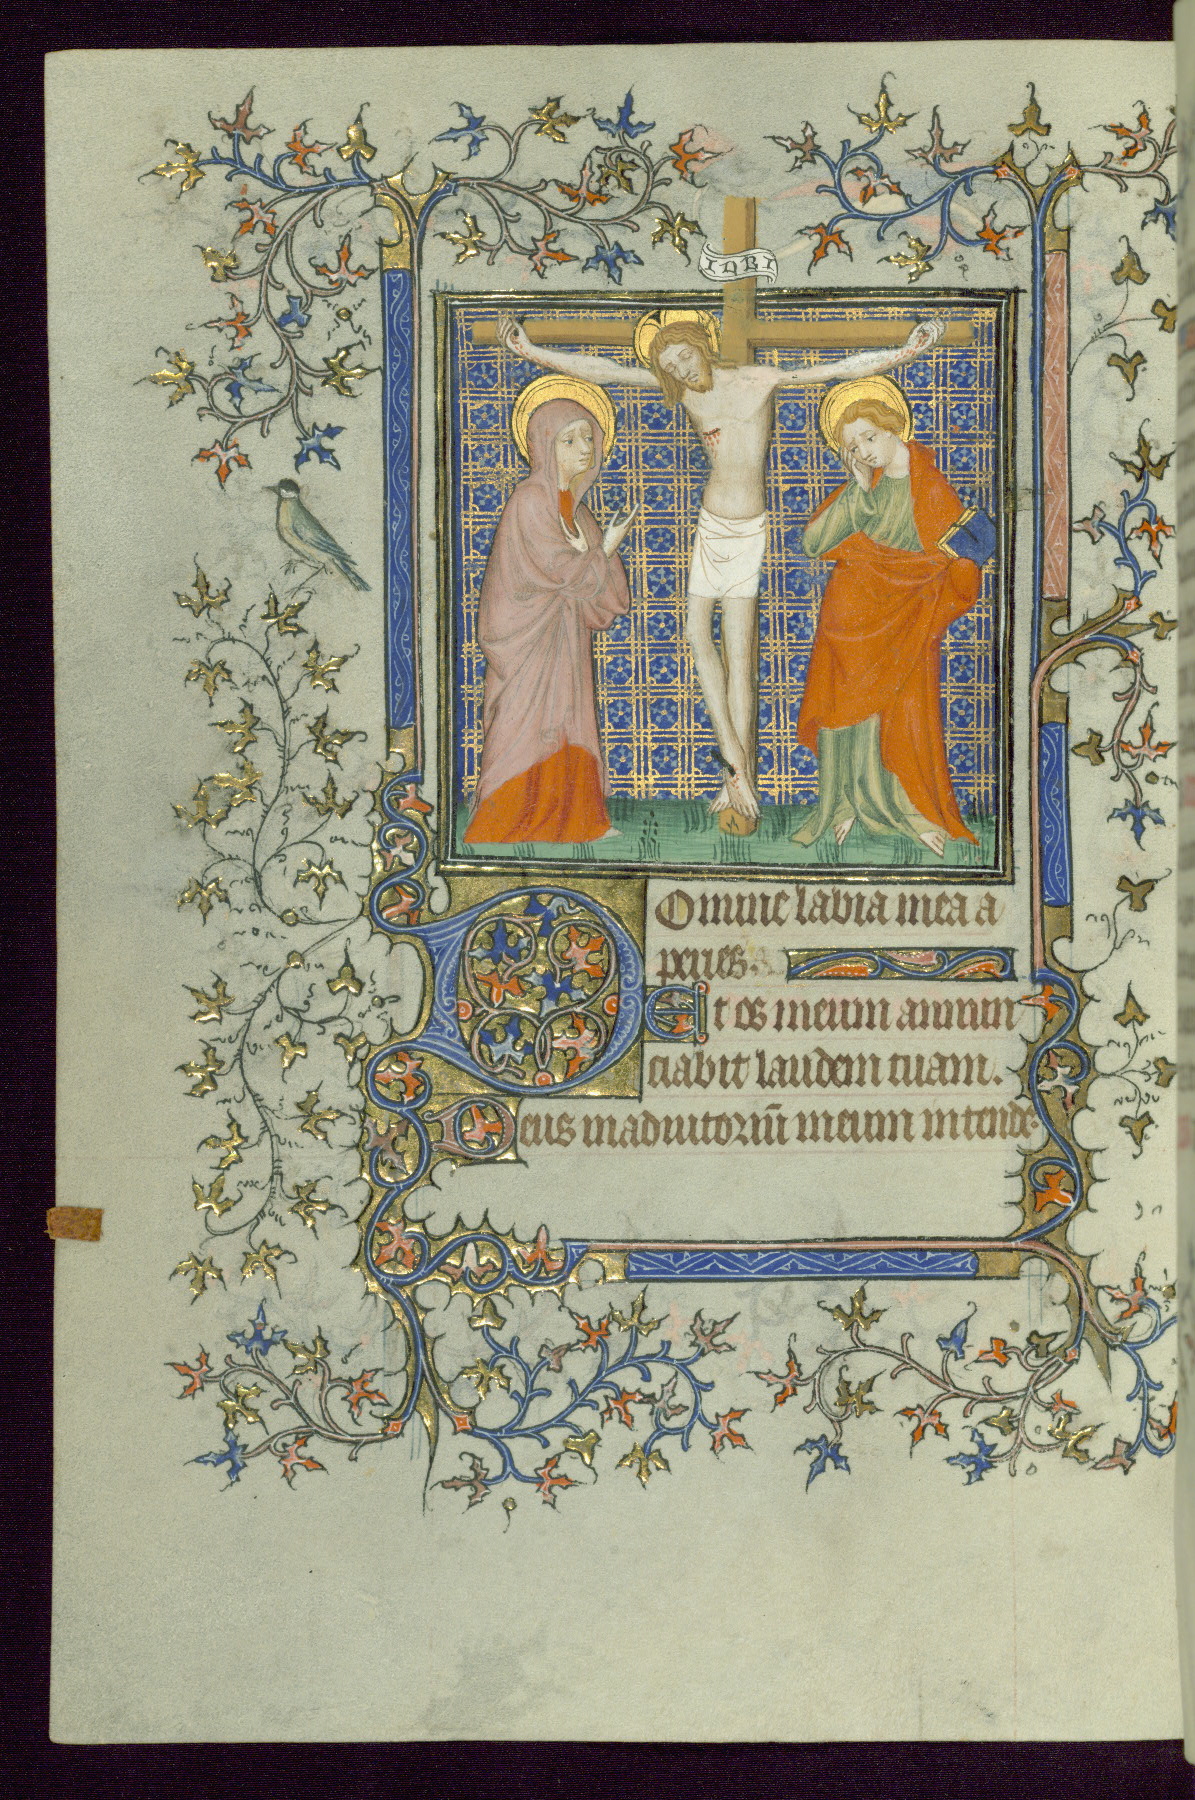 INRI
Domine labia mea a
peries.
Et os meum annun
ciabit laudem tuam.
Deus in adiutoriū meum intende.